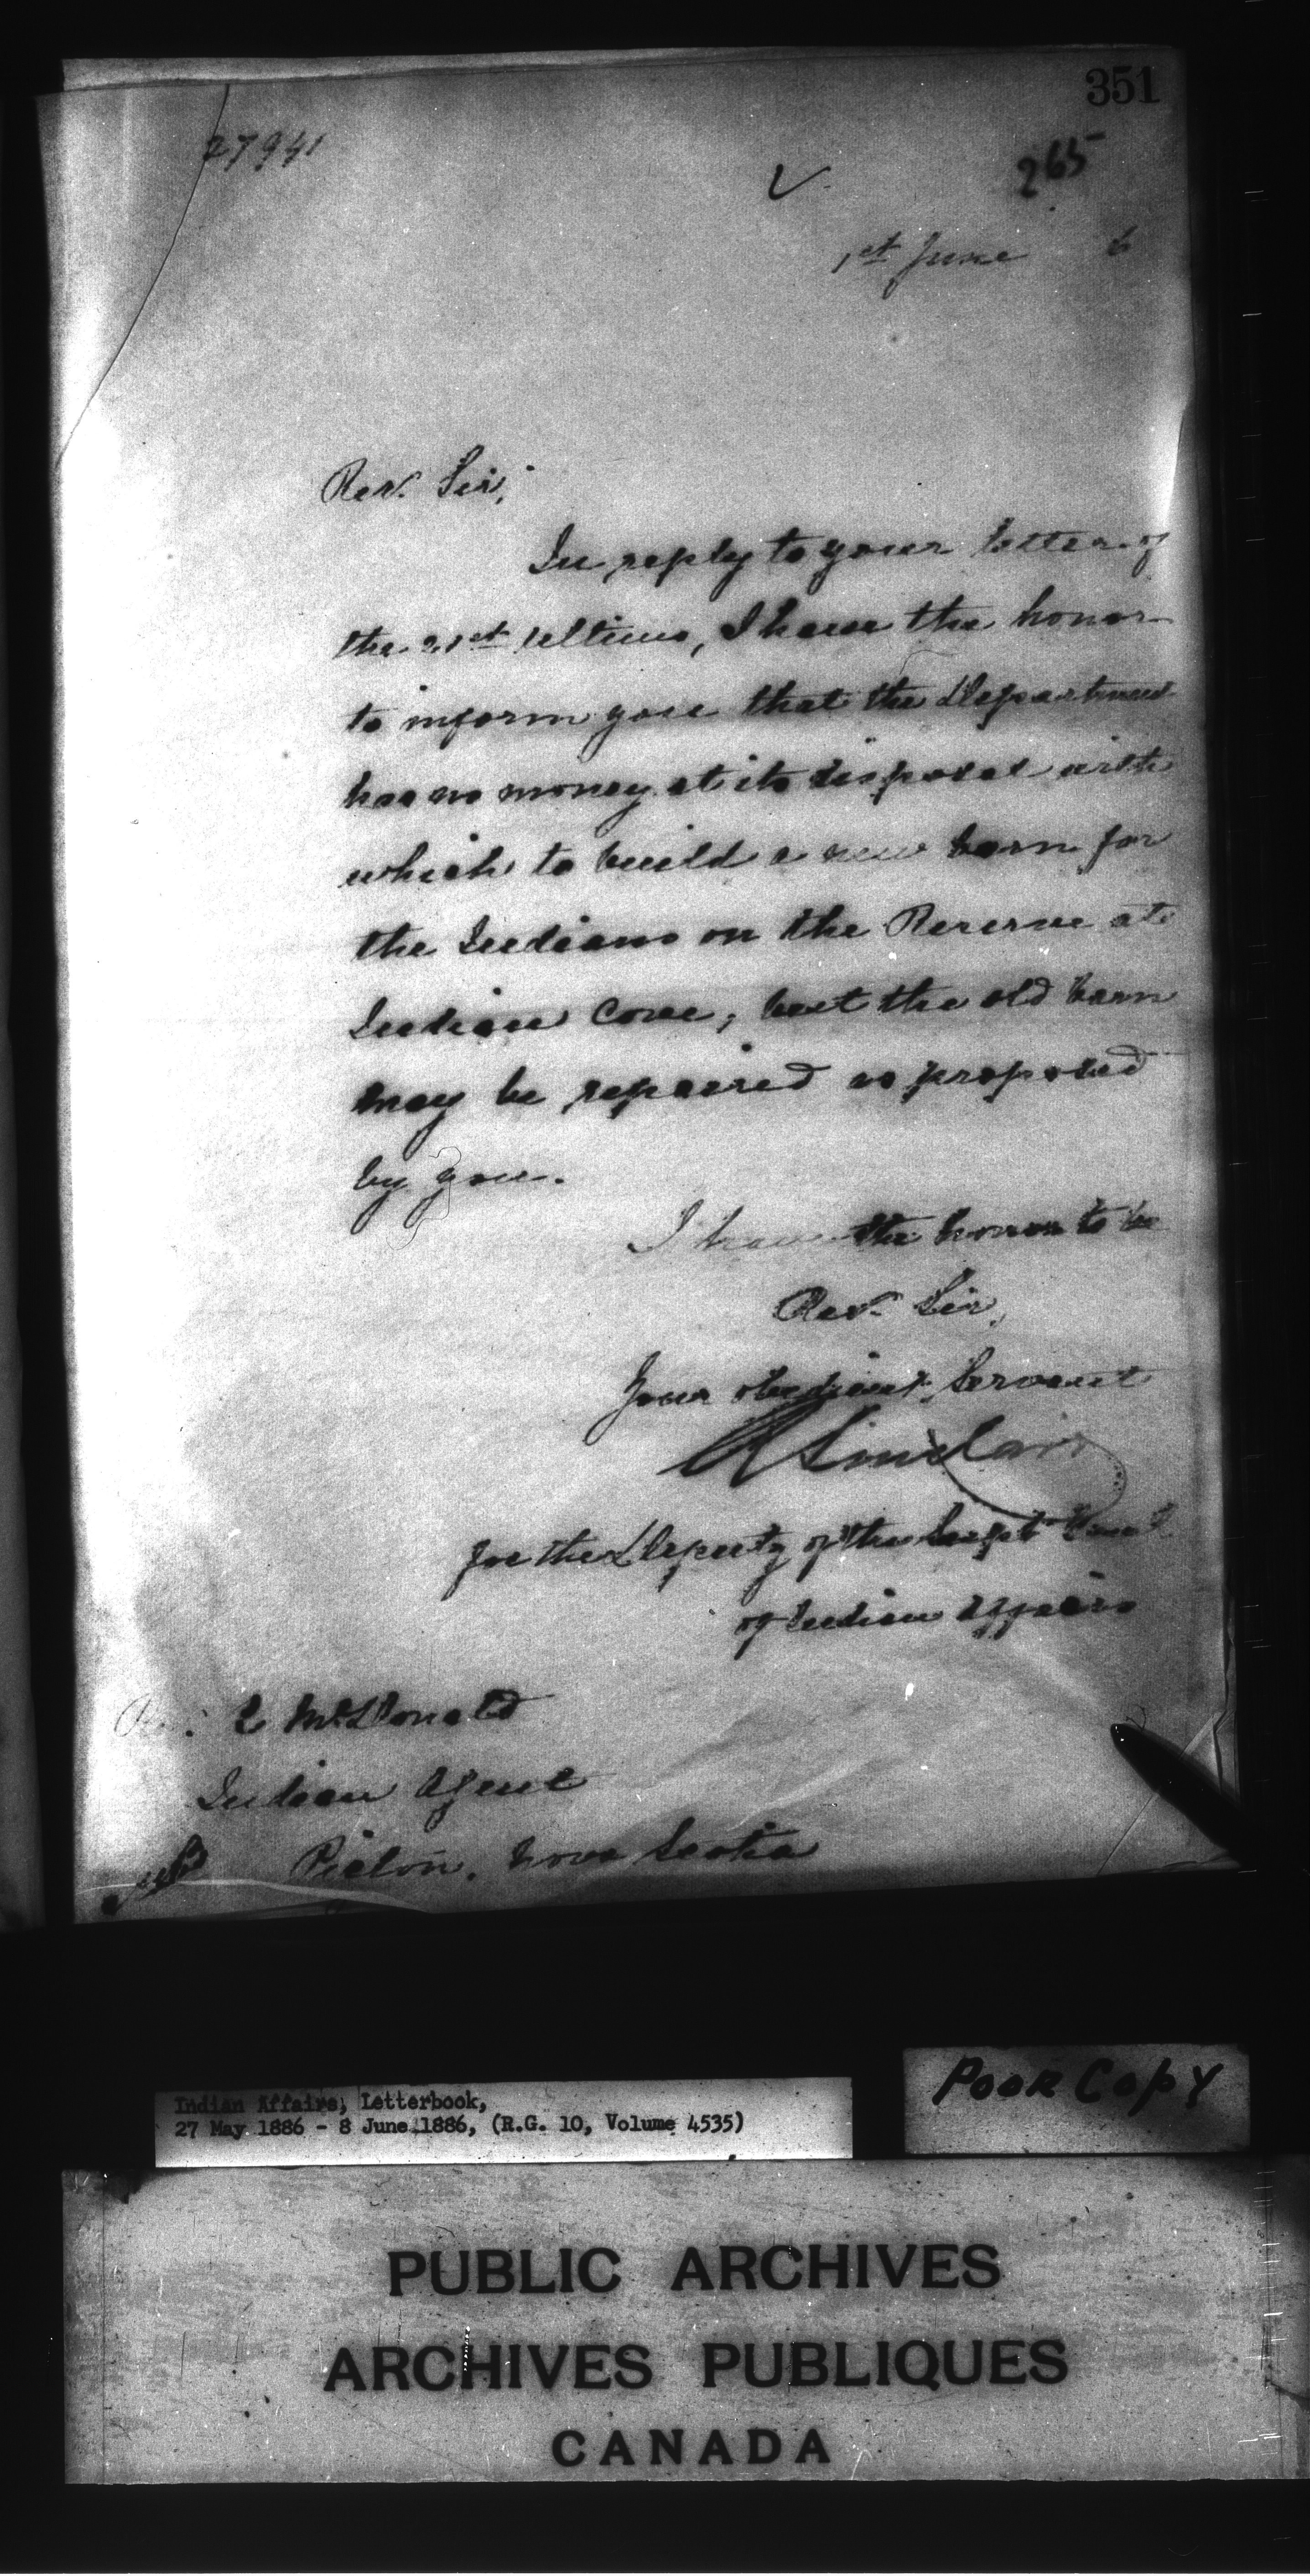 351
27941
265
1st June 6
Rev. Sir,
In reply to your letter of
the 21st ultimo, I have the honor
to inform you that the Department
has no money at its disposal with
which to build a new barn for
the Indians on the Reserve at
Indian Cove, but the old barn
may be repaired as proposed
by you.
I have the honor to be
Rev. Sir,
Your obedient Servant
R Sinclair
for the Deputy of the Supt Genl
of Indian Affairs
McDonald
Indian Agent
Pictou, Nova Scotia
Poor Copy
Indian Affairs, Letterbook,
27 May 1886 - 8 June 1886, (R.G. 10, Volume 4535)
PUBLIC ARCHIVES
ARCHIVES PUBLIQUES
CANADA